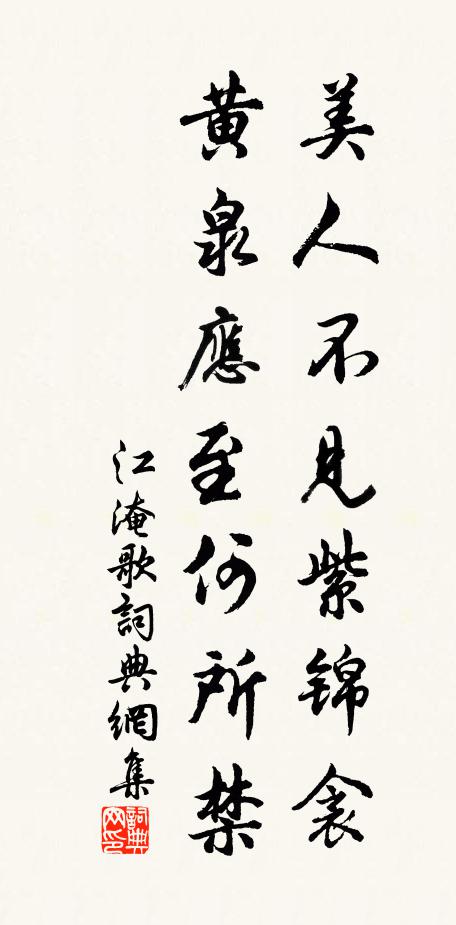 美人不見紫錦衾
黃泉應至何所禁
江淹歌詞典網集
詞典
网印